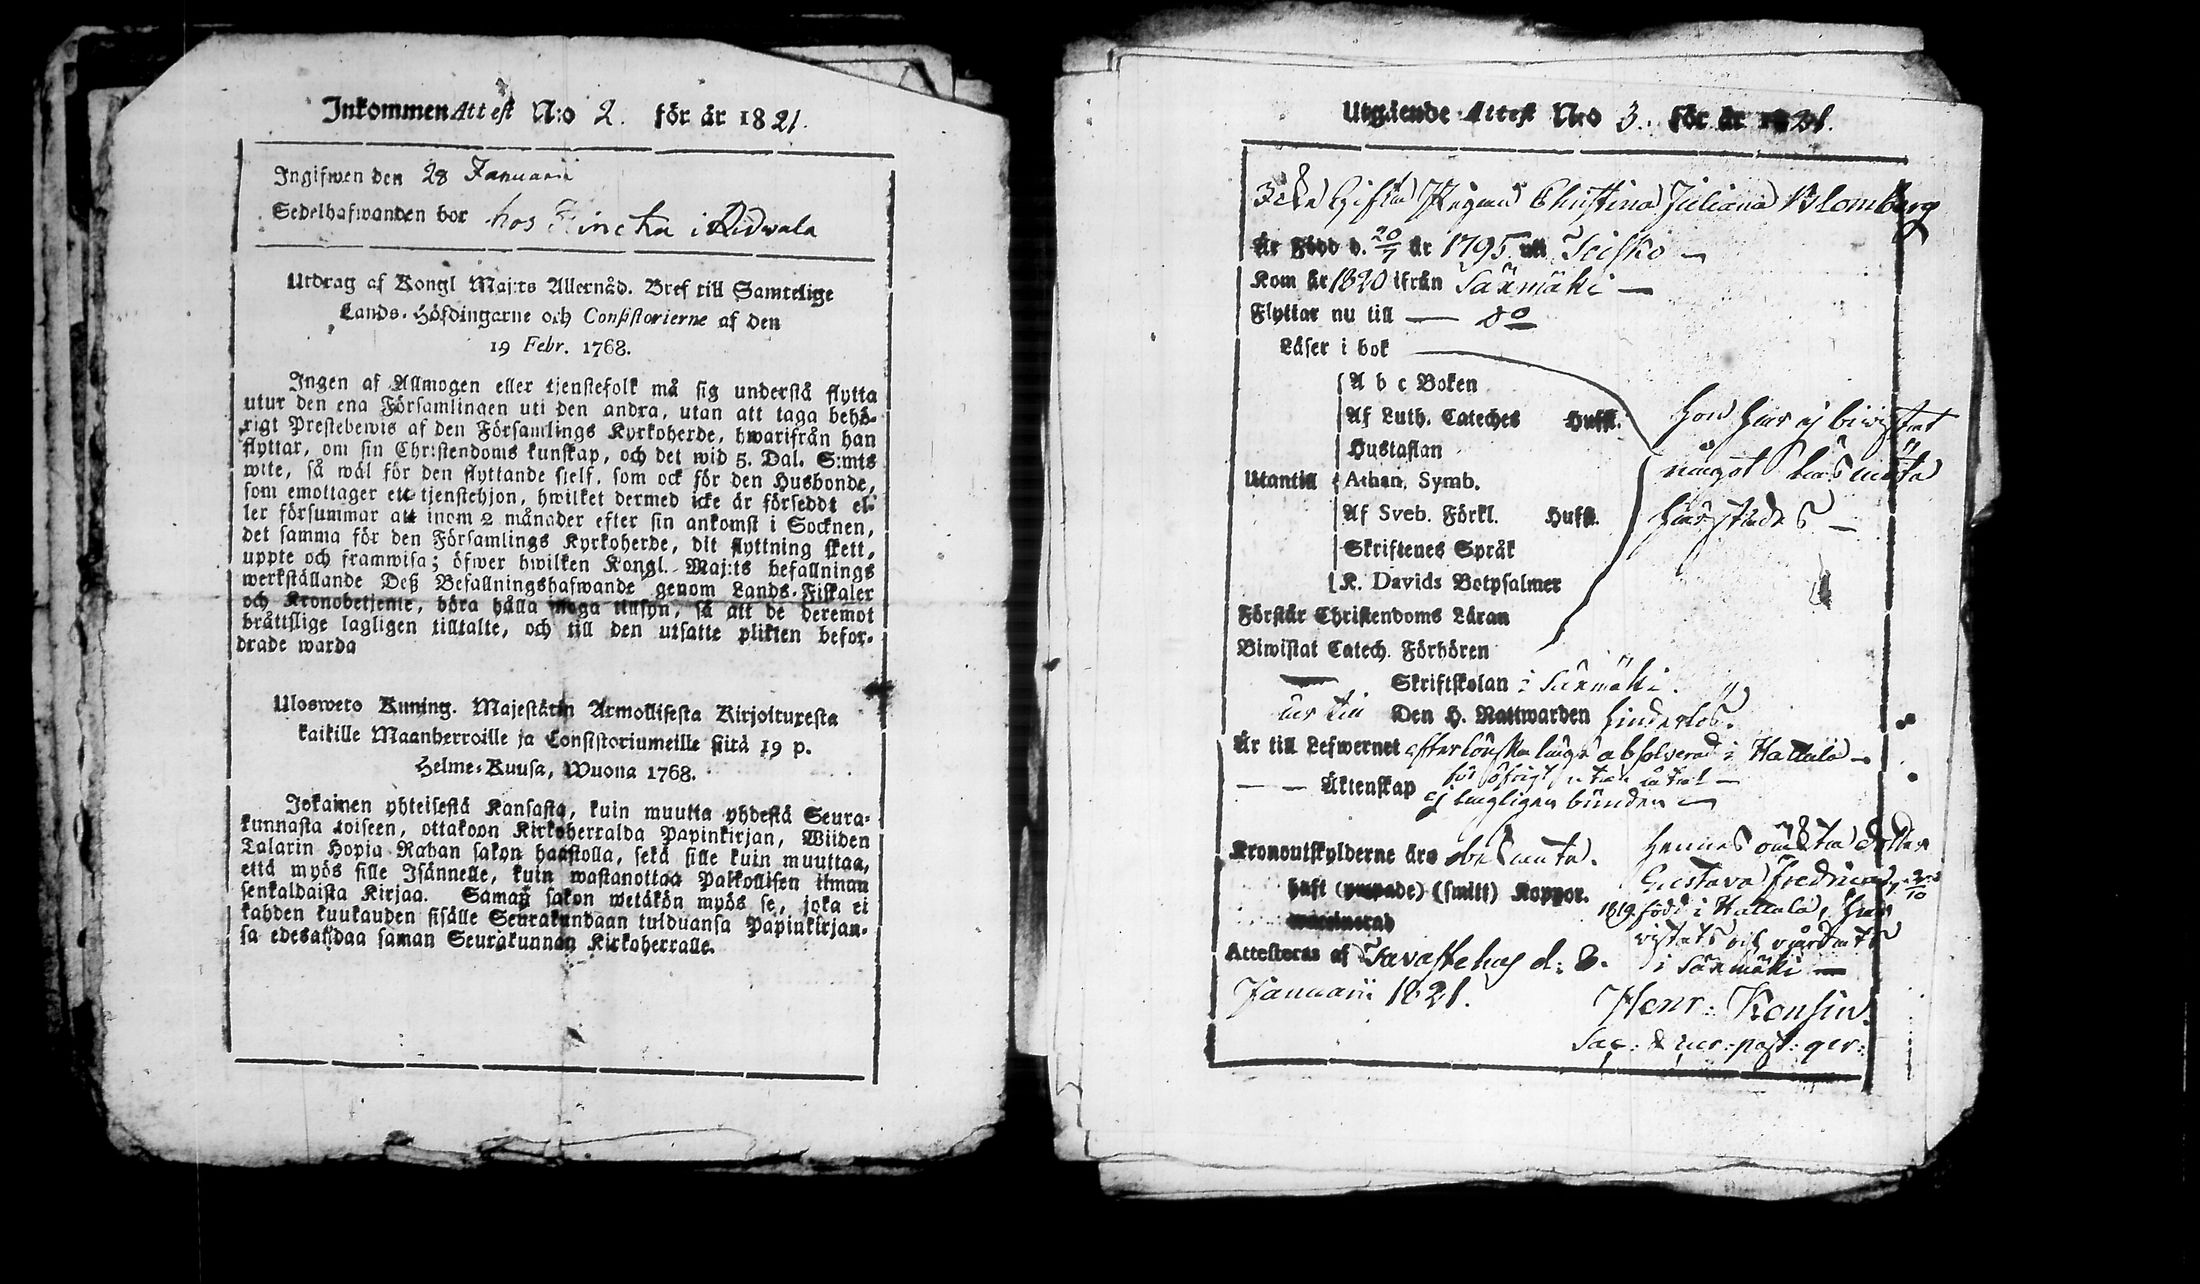 Inkommen Attest N:o 2. för år 1821.
Ingifwen den 28 Januarii
Sedelhafwanden bor hos Hincka i Ridwala
Utdrag af Kongl Maj:ts Allernåd. Bref till Samtelige
Lands-Höfdingarne och Consistorierne af den
19 Febr. 1768.
Ingen af Allmogen eller tjenstefolk må sig understå flytta
utur den ena Församlingen uti den andra, utan att taga behö-
rigt Prestebewis af den Församlings Kyrkoherde, hwarifrån han
flyttar, om sin Christendoms kunskap, och det wid 5. Dal. S:mts
wite, så wäl för den flyttande sjelf, som ock för den Husbonde,
som emottager ett tjenstehjon, hwilket dermed icke är förseddt el-
ler försummar att inom 2 månader efter sin ankomst i Socknen,
det samma för den Församlings Kyrkoherde, dit flyttning skett,
uppte och framwisa; öfwer hwilken Kongl. Maj:ts befallnings
werkställande Deß Befallningshafwande genom Lands-Fiskaler
och Kronobetjente, böra hålla noga tillsyn, så att de deremot
bråttslige lagligen tilltalte, och till den utsatte plikten befor-
drade warda
Ulosweto Kuning. Majestätin Armollisesta Kirjoituxesta
kaikille Maanherroille ja Consistoriumeille siitä 19 p.
Helme-Kuusa, Wuona 1768.
Jokainen yhteisestä Kansasta, kuin muutta yhdestä Seura-
kunnasta toiseen, ottakoon Kirkoherralda Papinkirjan, Wiiden
Talarin Hopia Rahan sakon haastolla, sekä sille kuin muuttaa,
että myös sille Isännelle, kuin wastanottaa Palkollisen ilman
senkaldaista Kirjaa. Saman sakon wetäkön myös se, joka ei
kahden kuukauden sisälle Seurakundaan tulduansa Papinkirjan-
sa edesatsdaa saman Seurakunnan Kirkoherralle.
Utgående Attest N:o 3. för år 1821.
Gifta Pigan Christina Juliana Blomberg
Är Född d. 20/7 år 1795 uti Teisko
Kom år 1820 ifrån Säxmäki
Flyttar nu till — do
Läser i bok
A b c Boken
Af Luth. Cateches Hufst.
Hustaflan
Utantill Athan. Symb.
Af Sveb. Förkl. Hufst.
Skriftenes Språk
K. Davids Botpsalmer
hon har ej biwistat
något Läsmöte
härstädes
Förstår Christendoms Läran
Biwistat Catech. Förhören
Skriftskolan i Säxmäki.
är till Den H. Nattwarden hinderlös.
Är till Lefwernet efter lönskaläge absolverad i Hattula
för öfrigt utan
— — Äktenskap ej lagligen bunden
Kronoutskylderne äro betalte.
haft (ympade) (smitt) Koppor.
waccinerad
Hennes oäkta dotter
Gustava Fredrica,
1819 född i Hattula, har
vistats och vårdats
i Säxmäki
Attesteras af Tavastehus d: 8.
Januarii 1821.
Henr: Konsin.
Sac: